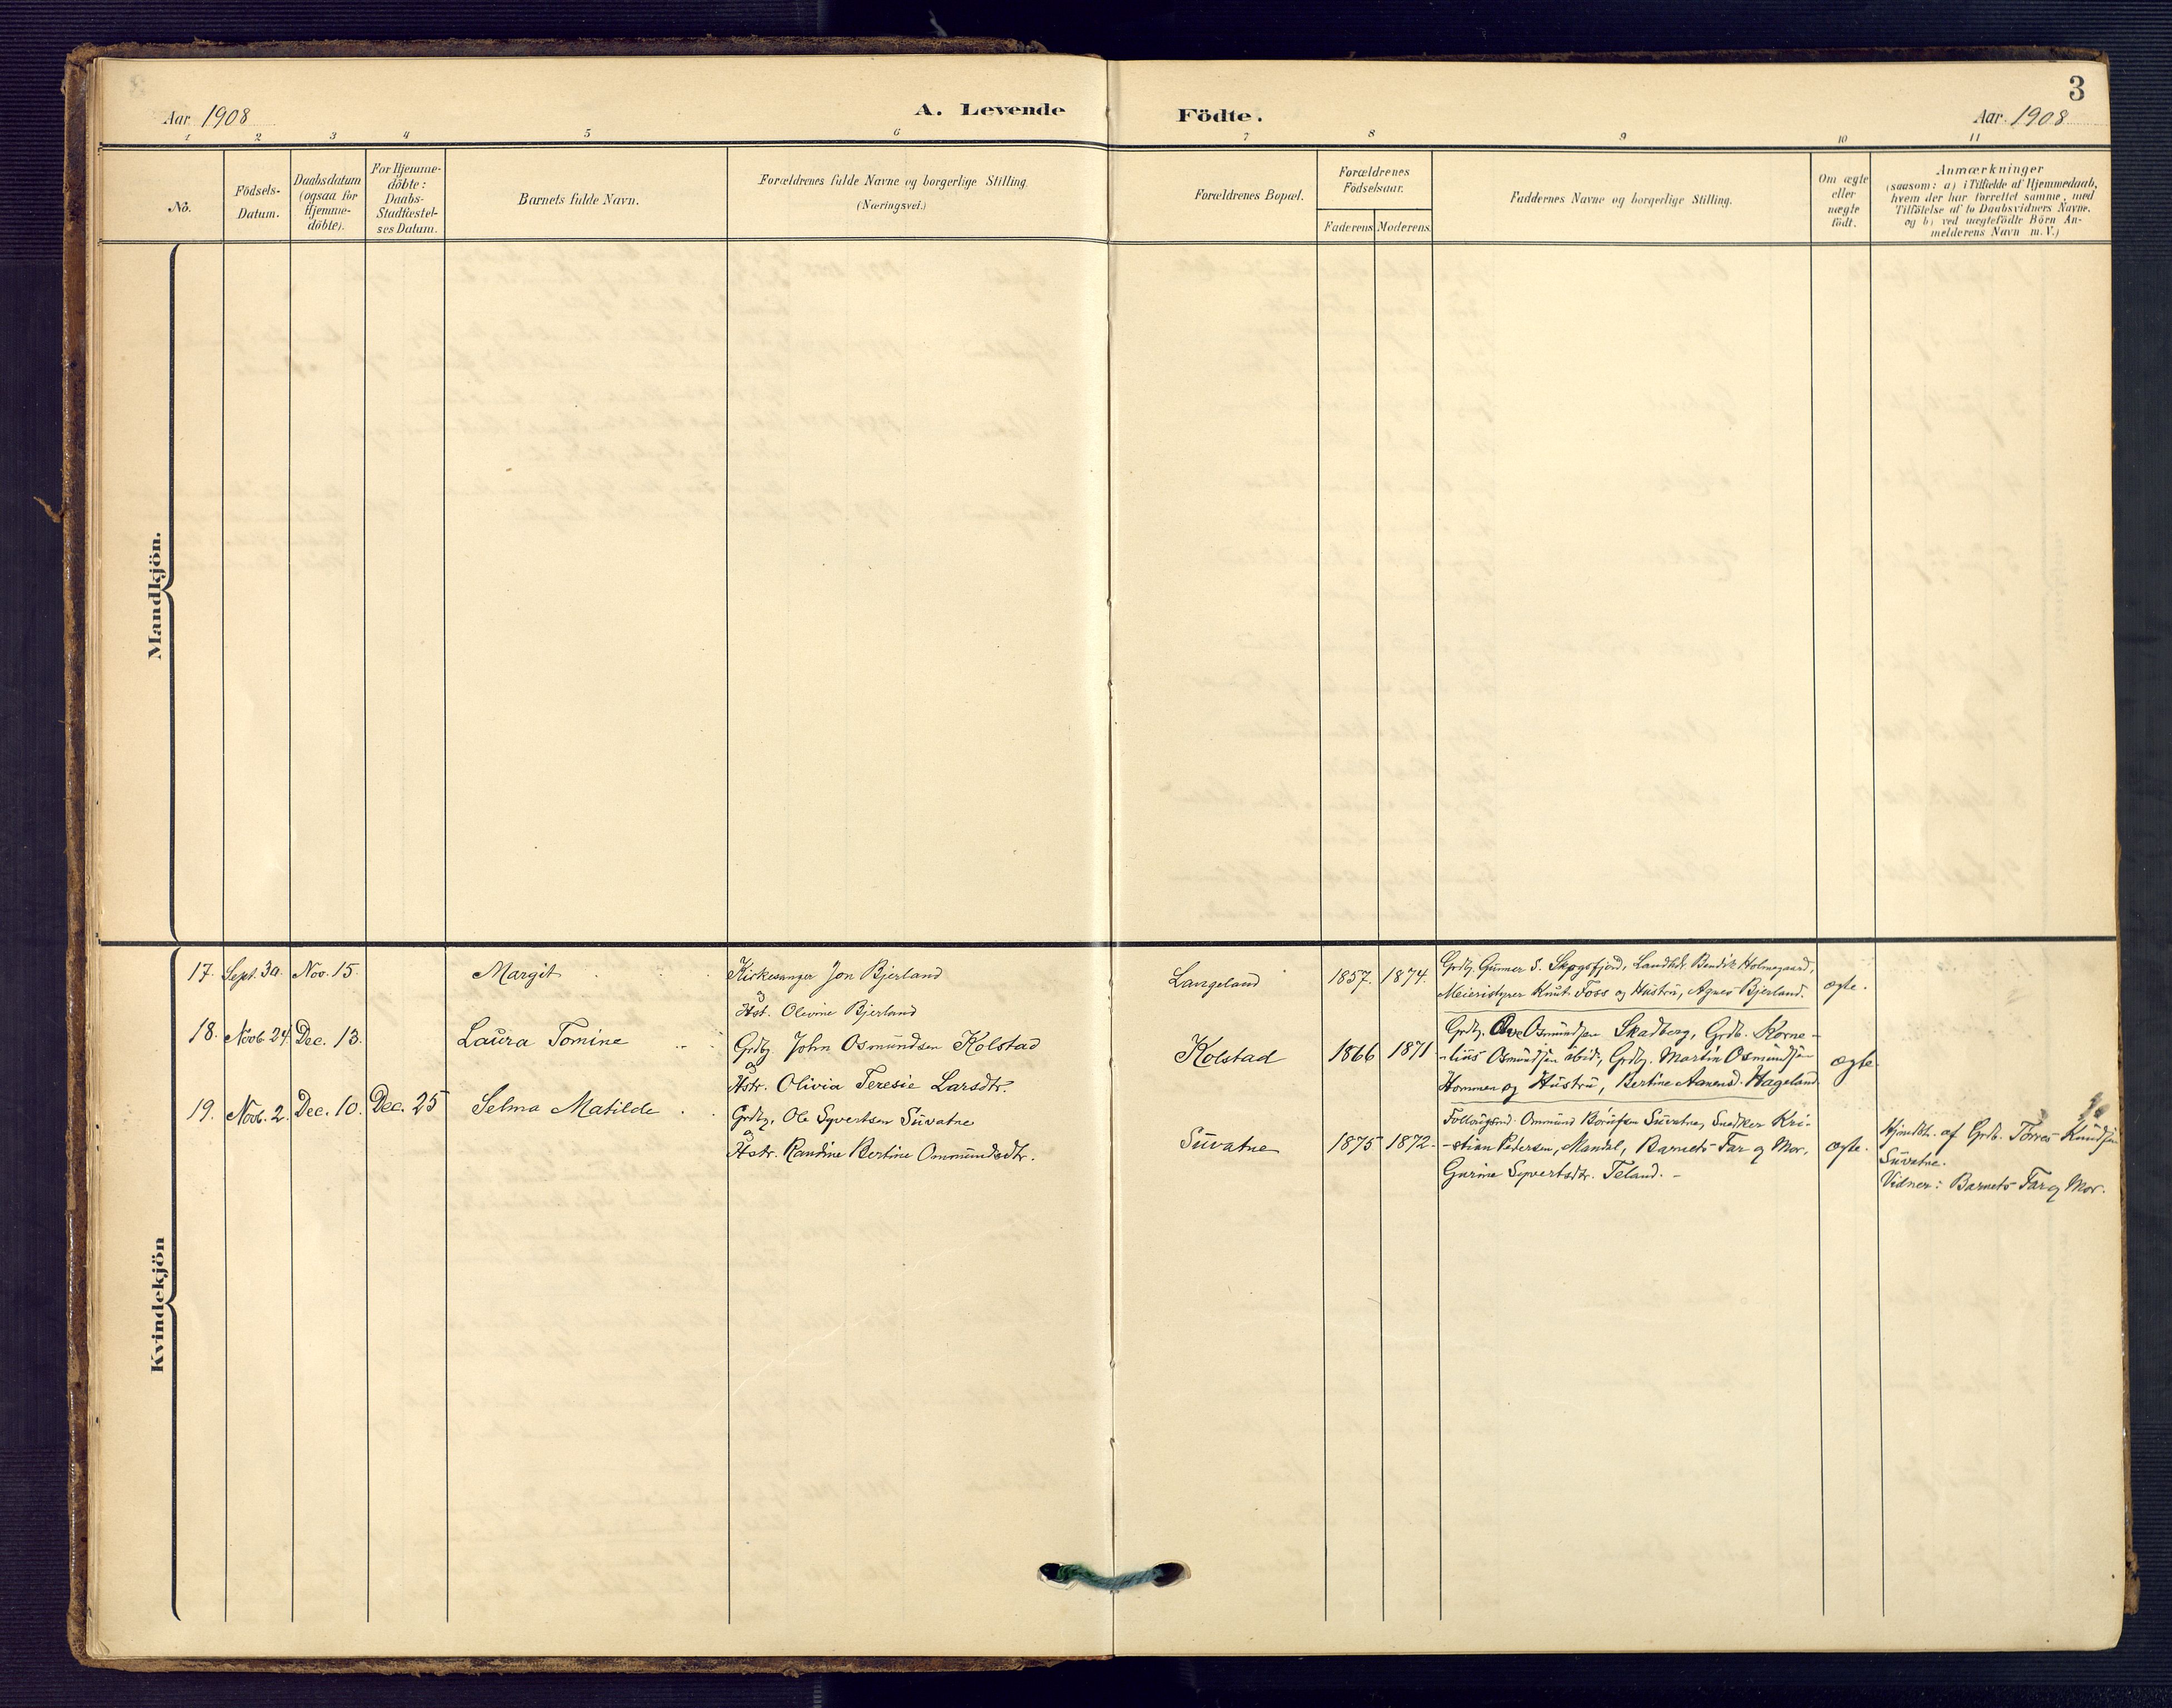 3
Aar 1908
A. Levende Födte.
Aar 1908
1 2 3 4 5 6 7 8 9 10 11
No.
Födsels-
Datum.
Daabsdatum
(ogsaa for
Hjemme-
döbte).
For Hjemme-
döbte:
Daabs-
Stadfæstel-
ses Datum.
Barnets fulde Navn.
Forældrenes fulde Navne og borgerlige Stilling
(Næringsvei.)
Forældrenes Bopæl.
Forældrenes
Födselsaar.
Faderens Moderens
Faddernes Navne og borgerlige Stilling.
Om ægte
eller
uægte
födt.
Anmærkninger
(saasom: a) i Tilfælde af Hjemmedaab,
hvem der har forrettet samme, med
Tilföielse af to Daabsvidners Navne.
og b) ved uægtefödte Börn An-
melderens Navn m. V.)
Mandkjön.
Kvindekjön
17. Sept. 30. Nov. 15. Margit
Kirkesanger Jon Bjerland
og
Hst. Olevine Bjerland
Langeland 1857. 1874.
Grdbg. Gunner S. Skogsfjord, Landhdr. Bendik Holmegaard,
Meieristyrer Knut Foss og Hustru, Agnes Bjerland.
ægte.
18. Novb 24. Dec. 13. Laura Tomine
Grdbg John Osmundsen Kolstad
og
Hstr. Olivia Teresie Larsdtr.
Kolstad 1866 1871
Grdbg. Osmundsen Skadberg, Grdb. Korne-
-lius Osmundsen ibid., Grdbg. Martin Osmundsen
Hommen og Hustru, Bertine Aanensd. Hageland.
ægte
19. Novb. 2. Dec. 10. Dec. 25 Selma Matilde
Grdbg. Ole Syvertsen Suvatne
og
Hstr. Randine Bertine Ommundsdtr.
Suvatne 1875 1872.
Ommund Suvatne, Snedker Kri-
-stian Pedersen, Mandal, Barnets Far og Mor,
Gurine Syvertsdtr. Teland. -
ægte.
Hjmdbt. af Grdb. Torres Knudsen
Suvatne.
Vidner: Barnets Far og Mor.